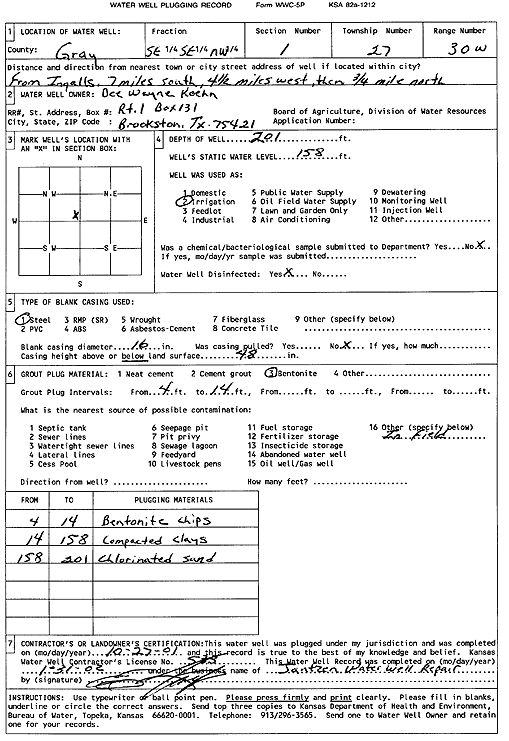 WATER WELL PLUGGING RECORD Form WWC-5P KSA 82a-1212
1 LOCATION OF WATER WELL: Fraction Section Number Township Number Range Number
County: Gray SE 1/4 SE 1/4 NW 1/4 1 27 30W
Distance and direction from nearest town or city street address of well if located within city?
From Ingalls, 7 miles south, 4 1/2 miles west, then 3/4 mile north
2 WATER WELL OWNER: Dee Wayne Koehn
RR#, St. Address, Box #: Rt.1 Box 131 Board of Agriculture, Division of Water Resources
City, State, ZIP Code : Brookston, Tx. 75421 Application Number:
3 MARK WELL'S LOCATION WITH AN "X" IN SECTION BOX:
N
N W N.E
W X E
S W S E
S
4 DEPTH OF WELL.....201.....ft.
WELL'S STATIC WATER LEVEL....158....ft.
WELL WAS USED AS:
1 Domestic 5 Public Water Supply 9 Dewatering
2 Irrigation 6 Oil Field Water Supply 10 Monitoring Well
3 Feedlot 7 Lawn and Garden Only 11 Injection Well
4 Industrial 8 Air Conditioning 12 Other...............
Was a chemical/bacteriological sample submitted to Department? Yes....No.X..
If yes, mo/day/yr sample was submitted...................
Water Well Disinfected: Yes X... No......
5 TYPE OF BLANK CASING USED:
1 Steel 3 RMP (SR) 5 Wrought 7 Fiberglass 9 Other (specify below)
2 PVC 4 ABS 6 Asbestos-Cement 8 Concrete Tile ...........................
Blank casing diameter...16...in. Was casing pulled? Yes...... No.X... If yes, how much.........
Casing height above or below land surface.......48.......in.
6 GROUT PLUG MATERIAL: 1 Neat cement 2 Cement grout 3 Bentonite 4 Other...............
Grout Plug Intervals: From..4..ft. to.14.ft., From......ft. to ......ft., From...... to......ft.
What is the nearest source of possible contamination:
1 Septic tank 6 Seepage pit 11 Fuel storage 16 Other (specify below)
2 Sewer lines 7 Pit privy 12 Fertilizer storage In Field
3 Watertight sewer lines 8 Sewage lagoon 13 Insecticide storage
4 Lateral lines 9 Feedyard 14 Abandoned water well
5 Cess Pool 10 Livestock pens 15 Oil well/Gas well
Direction from well? ...................... How many feet? ......................
FROM TO PLUGGING MATERIALS
4 14 Bentonite chips
14 158 Compacted clays
158 201 Chlorinated sand
7 CONTRACTOR'S OR LANDOWNER'S CERTIFICATION: This water well was plugged under my jurisdiction and was completed
on (mo/day/year) 10-27-01 and this record is true to the best of my knowledge and belief. Kansas
Water Well Contractor's License No. This Water Well Record was completed on (mo/day/year)
1-31-02 under the business name of Jantzen Water Well Repair
by (signature)
INSTRUCTIONS: Use typewriter or ball point pen. Please press firmly and print clearly. Please fill in blanks,
underline or circle the correct answers. Send top three copies to Kansas Department of Health and Environment,
Bureau of Water, Topeka, Kansas 66620-0001. Telephone: 913/296-3565. Send one to Water Well Owner and retain
one for your records.